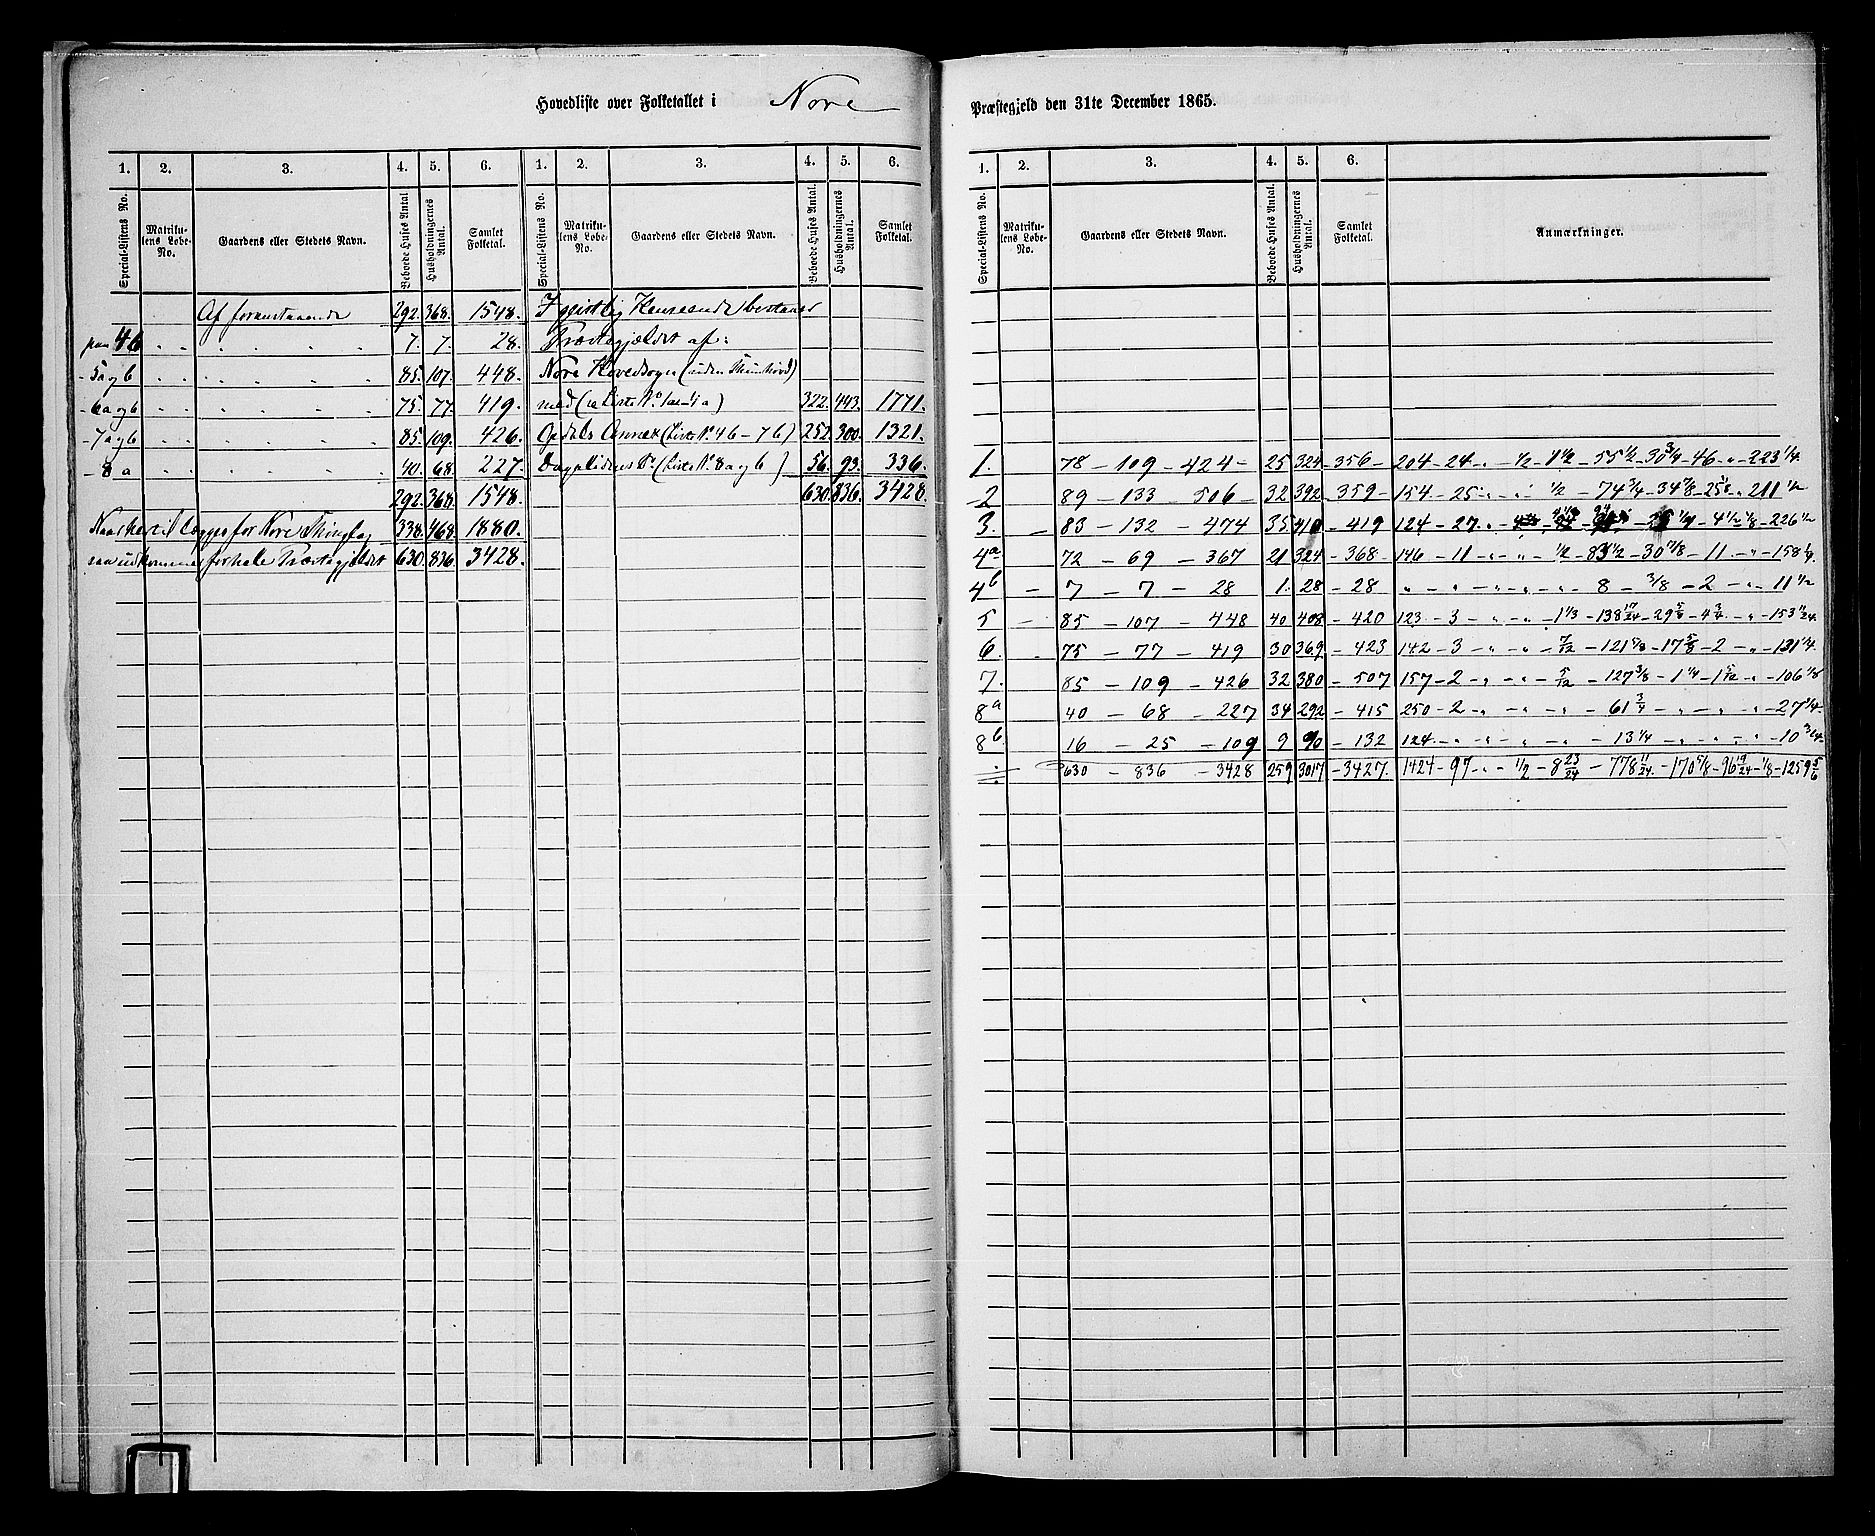 Hovedliste over Folketallet i Nore Præstegjeld den 31te December 1865.
1. 2. 3. 4. 5. 6. 1. 2. 3. 4. 5. 6.
Special-Listens No. Matrikulens Løbe-No. Gaardens eller Stedets Navn. Beboede Huses Antal Husholdningernes Antal. Samlet Folketal. Special-Listens No. Matrikulens Løbe-No. Gaardens eller Stedets Navn. Beboede Huses Antal. Husholdningernes Antal. Samlet Folketal.
Af foranstaaende 292. 368. 1548. I geistlig Henseende bestaaer
paa 4b " " " " " " 7. 7. 28. Præstegjældet af:
- 5 a og b " " " " " " 85. 107. 448. Nore Hovedsogn (uden Skurdalen)
- 6 a og b " " " " " " 75. 77. 419. med (Liste No. 1 til 4a) 322. 443. 1771.
- 7 a og b " " " " " " 85. 109. 426. Opdals Annex (Liste No. 4b - 7b) 252. 300. 1321.
- 8 a " " " " " " 40. 68. 227. Dagalidens Do. (Liste No. 8 a og b) 56. 93. 336.
292. 368. 1548. 630. 836. 3428.
Naar hertil lægges for Nore Thinglag 338. 468. 1880.
saa udkommer for hele Præstegjældet 630. 836. 3428.
1. 2. 3. 4. 5. 6.
Special-Listens No. Matrikulens Løbe-No. Gaardens eller Stedets Navn. Beboede Huses Antal. Husholdningernes Antal. Samlet Folketal. Anmærkninger.
1. 78 - 109 - 424 - 25 324 - 356 - 204 - 24 - " - ½ - 1½ - 55½ - 30¾ - 46 - " - 223¼
2 89 - 133 - 506 - 32 392 - 359 - 154 - 25 - " - " ½ - 74¾ - 34⅞ - 25⅛ - " - 211½
3. - 83 - 132 - 474 35 410 - 419 124 - 27 - 4½ - ⅛ - 226½
4a 72 - 69 - 367 21 324 - 368 146 - 11 - " - " - ½ - 83½ - 30⅞ - 11 - " - 158¼
4b - 7 - 7 - 28 1. 28 - 28 " - " - " - " - " - 8 - ⅜ - 2 - " - 11½
5 - 85 - 107 - 448 40 408 - 420 123 - 3 - " - " - 1⅓ - 138 17/24 - 29⅝ - 4¾ - " - 153 11/24
6. - 75 - 77 - 419 30 369 - 423 142 - 3 - " - " - 7/12 - 121⅞ - 17⅝ - 2 - " - 131¼
7. 85 - 109 - 426 32 380 - 507 157 - 2 - " - " - 5/12 - 127⅜ - 1¼ - 1 5/12 - " - 106⅛
8a 40 - 68 - 227 34 292 - 415 250 - 2 - " - " - " - 61¾ - " - " - " - 27¼
8b 16 - 25 - 109 9 90 - 132 124 - " - " - " - " - 13¼ - " - " - " - 10 3/24
630 - 836 - 3428 259 3017 - 3427. 1424 - 97 - " - ½ - 8 23/24 - 778 11/24 - 170⅝ - 96 19/24 - ⅛ - 1259⅚